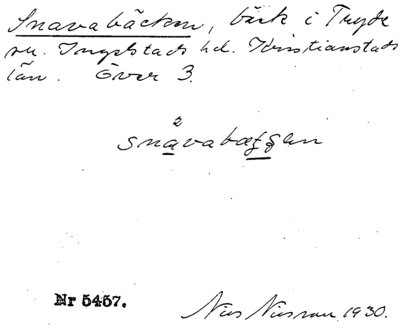 Snavabäcken, bäck i Tryde
sn. Ingelstads hd. Kristianstads
län. Över 3.
2
snavabæggen
Nr 5457.
Nils Nilsson 1930.